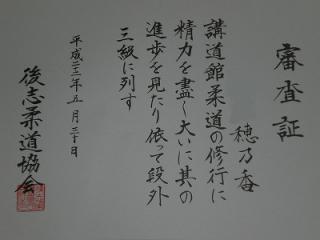 審査証
穂乃香
講道館柔道の修行に
精力を盡し大いに其の
進歩を見たり依って段外
三級に列す
平成二十三年五月三十日
後志柔道協会